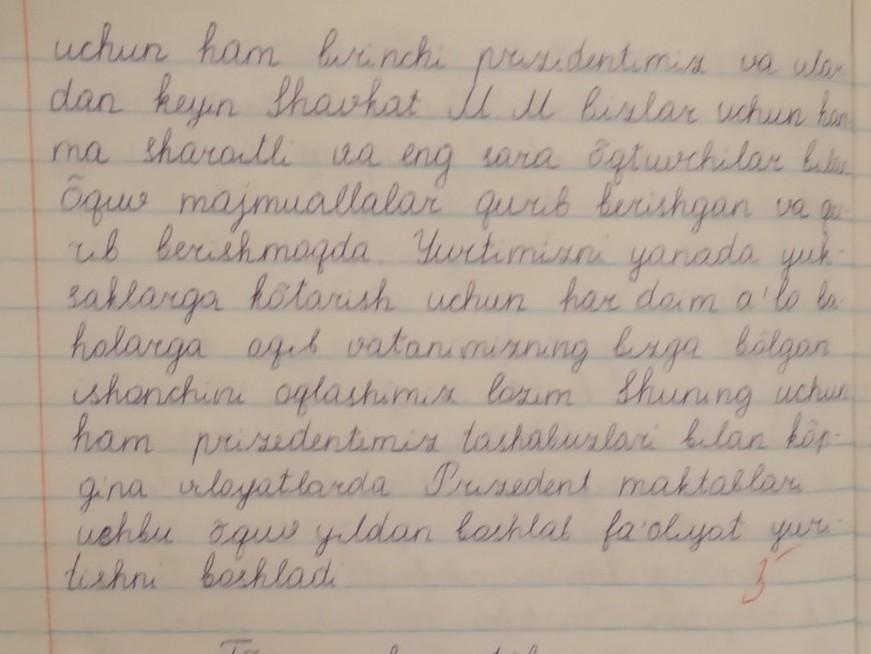 uchun ham birinchi prizidentimiz va ular-
dan keyin Shavkat M. M bizlar uchun ham
ma sharoitli va eng sara õqituvchilar bilan
õquv majmuallalar qurib berishgan va qu-
rib berishmoqda. Yurtimizni yanada yuk-
saklarga kõtarish uchun har doim a'lo ba-
holarga oqib vatanimizning bizga bõlgan
ishonchini oqlashimiz lozim Shuning uchun
ham prizedentimiz tashabuzlari bilan kõp-
gina viloyatlarda Prizedent maktablari
uchbu õquv yildan boshlab fa'olyat yuri-
tishni boshladi.
3